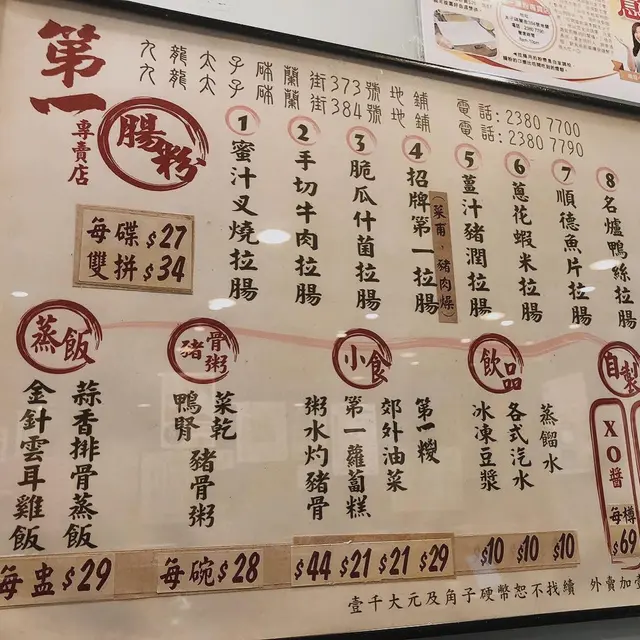 第一
腸粉
專賣店
九龍太子砵蘭街373號地鋪
九龍太子砵蘭街384號地鋪
電話:2380 7700
電話:2380 7790
每碟$27
雙拼$34
1 蜜汁叉燒拉腸
2 手切牛肉拉腸
3 脆瓜什菌拉腸
4 招牌第一拉腸
(菜甫,豬肉燥)
5 薑汁豬潤拉腸
6 蔥花蝦米拉腸
7 順德魚片拉腸
8 名爐鴨絲拉腸
蒸飯
蒜香排骨蒸飯
金針雲耳雞飯
每盅$29
豬骨粥
菜乾豬骨粥
鴨腎
每碗$28
小食
第一糉
郊外油菜
第一蘿蔔糕
粥水灼豬骨
$44 $21 $21 $29
飲品
蒸餾水
各式汽水
冰凍豆漿
$10 $10 $10
自製
XO醬
每樽
$69
壹千大元及角子硬幣恕不找續
外賣加壹